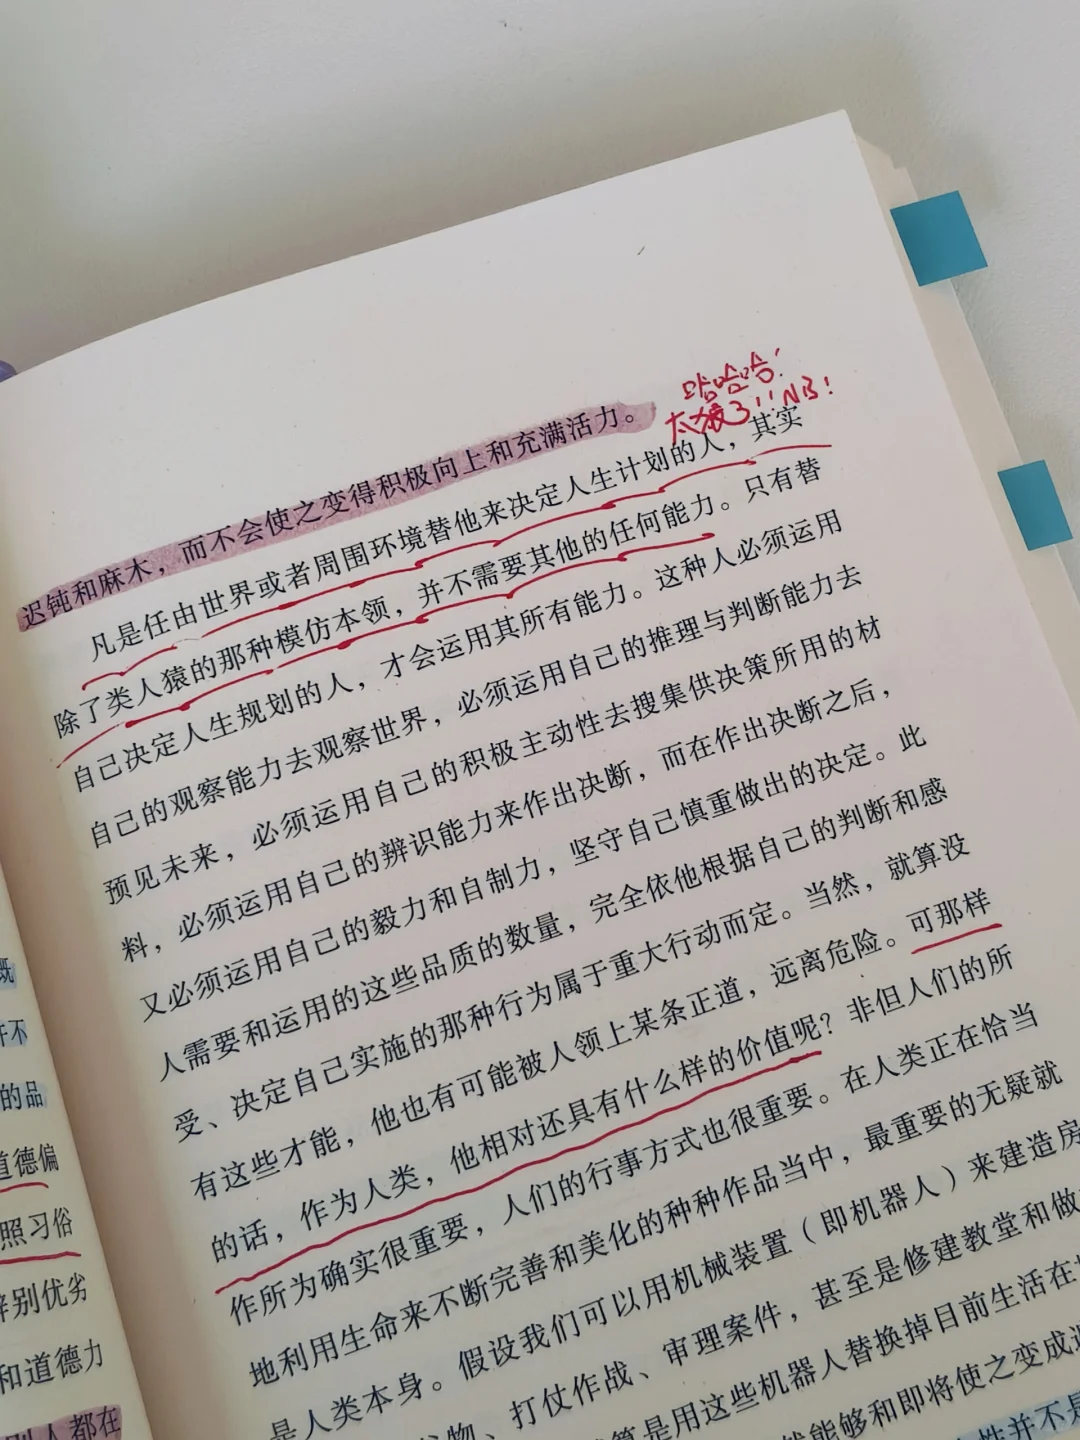 既
开不
的品
道德偏
照习俗
辨别优劣
和道德力
别人都在
哈哈哈！
太狠了！！NB！
迟钝和麻木，而不会使之变得积极向上和充满活力。
凡是任由世界或者周围环境替他来决定人生计划的人，其实
除了类人猿的那种模仿本领，并不需要其他的任何能力。只有替
自己决定人生规划的人，才会运用其所有能力。这种人必须运用
自己的观察能力去观察世界，必须运用自己的推理与判断能力去
预见未来，必须运用自己的积极主动性去搜集供决策所用的材
料，必须运用自己的辨识能力来作出决断，而在作出决断之后，
又必须运用自己的毅力和自制力，坚守自己慎重做出的决定。此
人需要和运用的这些品质的数量，完全依他根据自己的判断和感
受、决定自己实施的那种行为属于重大行动而定。当然，就算没
有这些才能，他也有可能被人领上某条正道，远离危险。可那样
的话，作为人类，他相对还具有什么样的价值呢？非但人们的所
作所为确实很重要，人们的行事方式也很重要。在人类正在恰当
地利用生命来不断完善和美化的种种作品当中，最重要的无疑就
是人类本身。假设我们可以用机械装置（即机器人）来建造房
物、打仗作战、审理案件，甚至是修建教堂和做
算是用这些机器人替换掉目前生活在
然能够和即将使之变成
性并不是